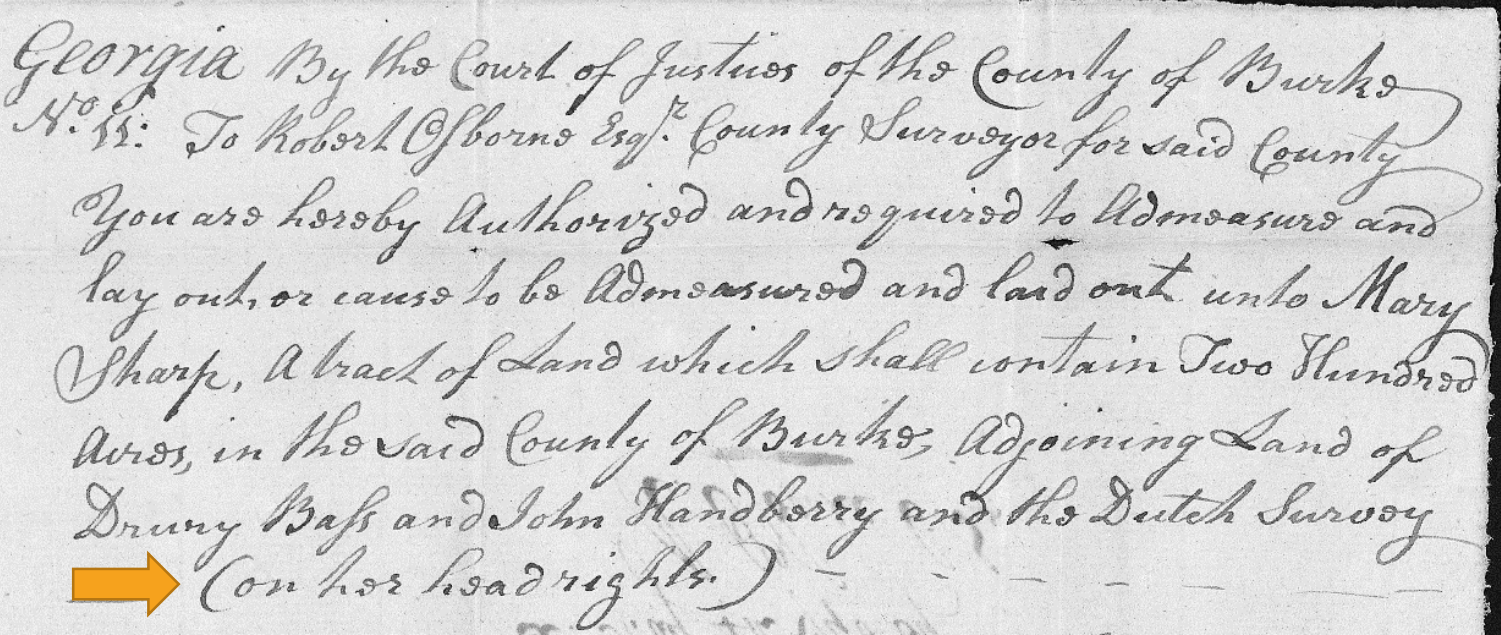 Georgia By the Court of Justices of the County of Burke
No. 11: To Robert Osborne Esqr. County Surveyor for said County
You are hereby Authorized and required to Admeasure and
lay out, or cause to be Admeasured and laid out unto Mary
Sharp, A tract of Land which shall contain Two Hundred
Acres, in the said County of Burke, Adjoining Land of
Drury Bass and John Handberry and the Dutch Survey
(on her head rights.)